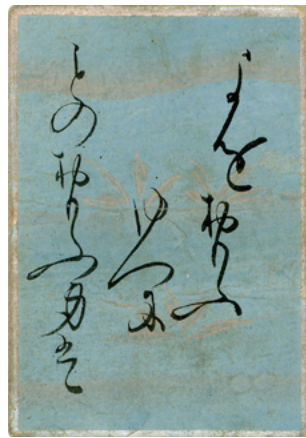 よをおもふ
ゆへに
ものおもふ身は